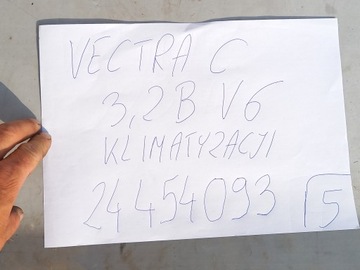 VECTRA C
3,2 B V6
KLIMATYZACJI
24454093
5